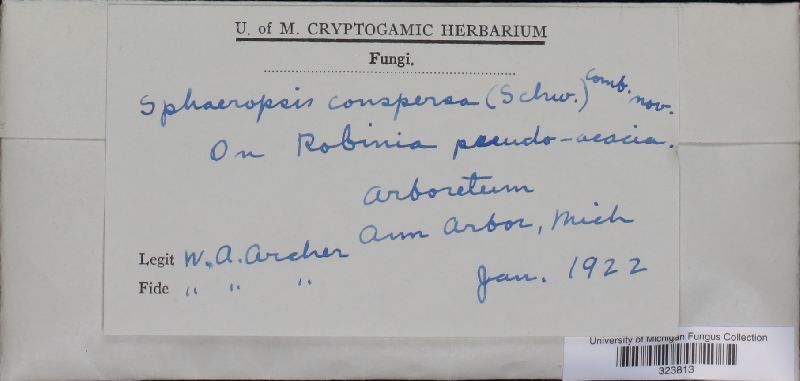 U. of M. CRYPTOGAMIC HERBARIUM
Fungi.
Sphaeropsis conspersa (Schw.) comb. nov.
On Robinia pseudo-acacia.
Arboretum
Ann Arbor, Mich
Legit W. A. Archer
Fide " " "
Jan. 1922
University of Michigan Fungus Collection
323813